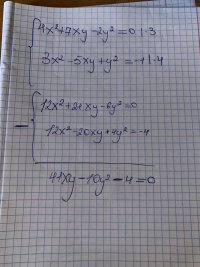 4x²+7xy-2y²=0 |·3
3x²-5xy+y²=-1 |·4
12x²+21xy-6y²=0
12x²-20xy+4y²=-4
41xy-10y²-4=0